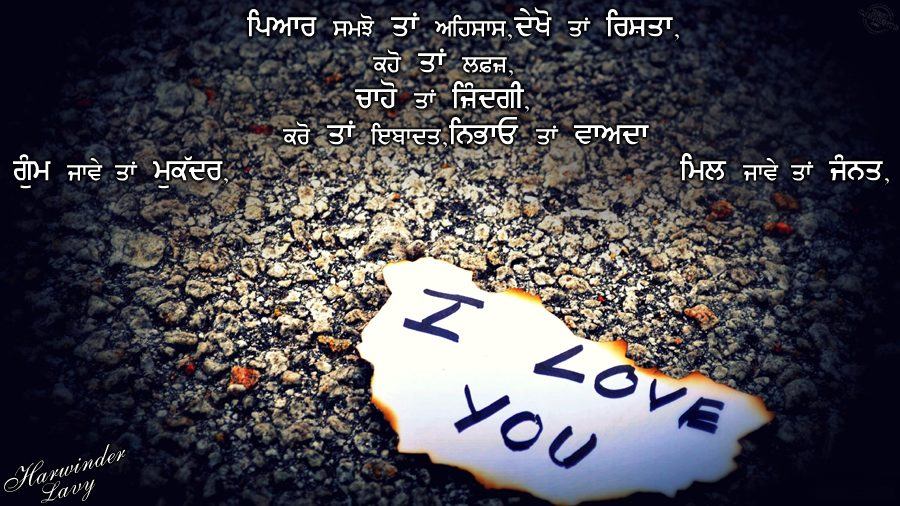 ਪਿਆਰ ਸਮਝੋ ਤਾਂ ਅਹਿਸਾਸ,ਦੇਖੋ ਤਾਂ ਰਿਸ਼ਤਾ,
ਕਹੋ ਤਾਂ ਲਫ਼ਜ਼,
ਚਾਹੋ ਤਾਂ ਜ਼ਿੰਦਗੀ,
ਕਰੋ ਤਾਂ ਇਬਾਦਤ,ਨਿਭਾਓ ਤਾਂ ਵਾਅਦਾ
ਗੁੰਮ ਜਾਵੇ ਤਾਂ ਮੁਕੱਦਰ, ਮਿਲ ਜਾਵੇ ਤਾਂ ਜੰਨਤ,
I LOVE
YOU
Harwinder
Lavy